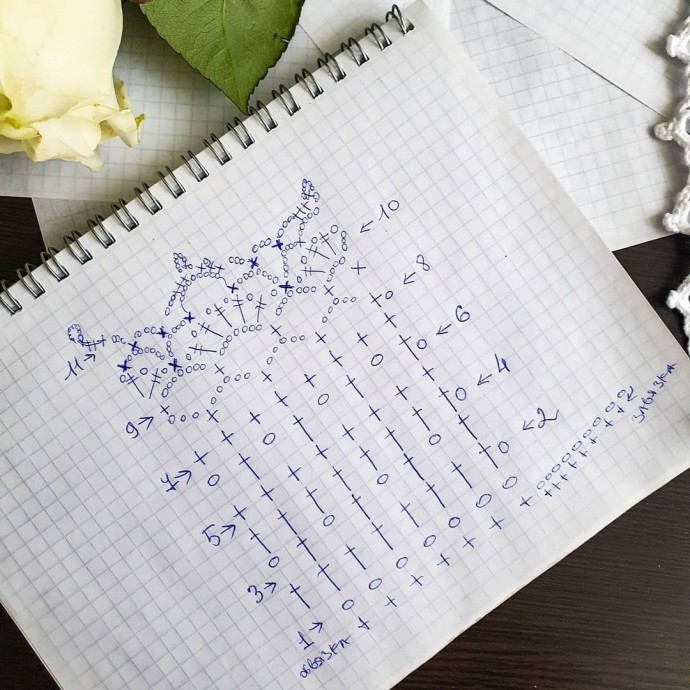 11→
←10
9→
←8
7→
←6
5→
←4
3→
←2
1→
обвязка
завязка